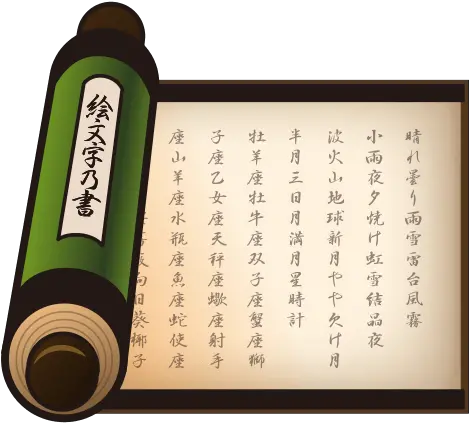 絵文字乃書
晴れ曇り雨雪雷台風霧
小雨夜夕焼け虹雪結晶夜
波火山地球新月やや欠け月
半月三日月満月星時計
牡羊座牡牛座双子座蟹座獅
子座乙女座天秤座蠍座射手
座山羊座水瓶座魚座蛇使座
向日葵椰子